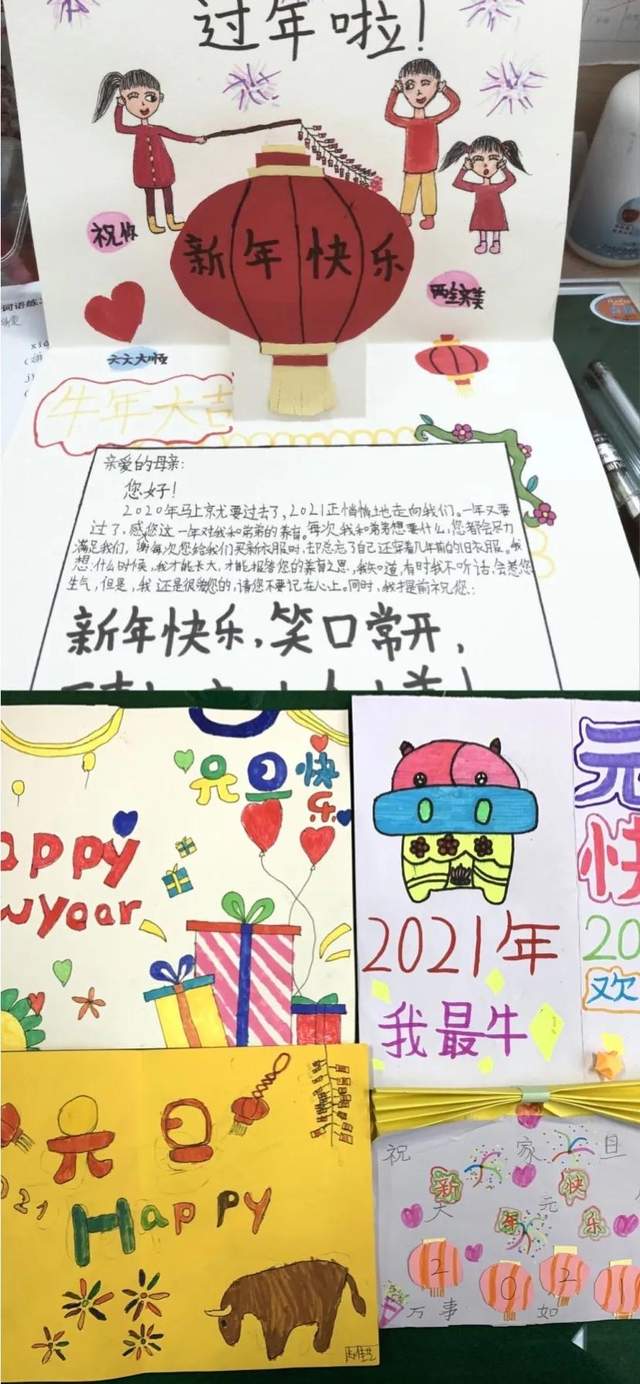 过年啦!
祝你
新年快乐
两全齐美
六六大顺
牛年大吉
亲爱的母亲:
您好!
2020年马上京尤要过去了,2021正悄悄土也走向我们。一年又要
过了,感您这一年对我和弟弟的养育。每次我和弟弟想要什么,您都会尽力
满足我们,谢每次您给我们买新衣服时,却总忘了自己还穿着几年前的旧衣服。我
想:什么时候,我才能长大,才能报答您的养育之恩,我知道,有时我不听话,会惹您
生气,但是,我还是很爱您的,请您不要记在心上。同时,我提前祝您:
新年快乐,笑口常开,
元旦快
乐
appy
wyear
2021年
我最牛
元
快
20
欢
元旦
021
Happy
祝 家 旦
新 快
大 年 元 乐
2021
万事 如